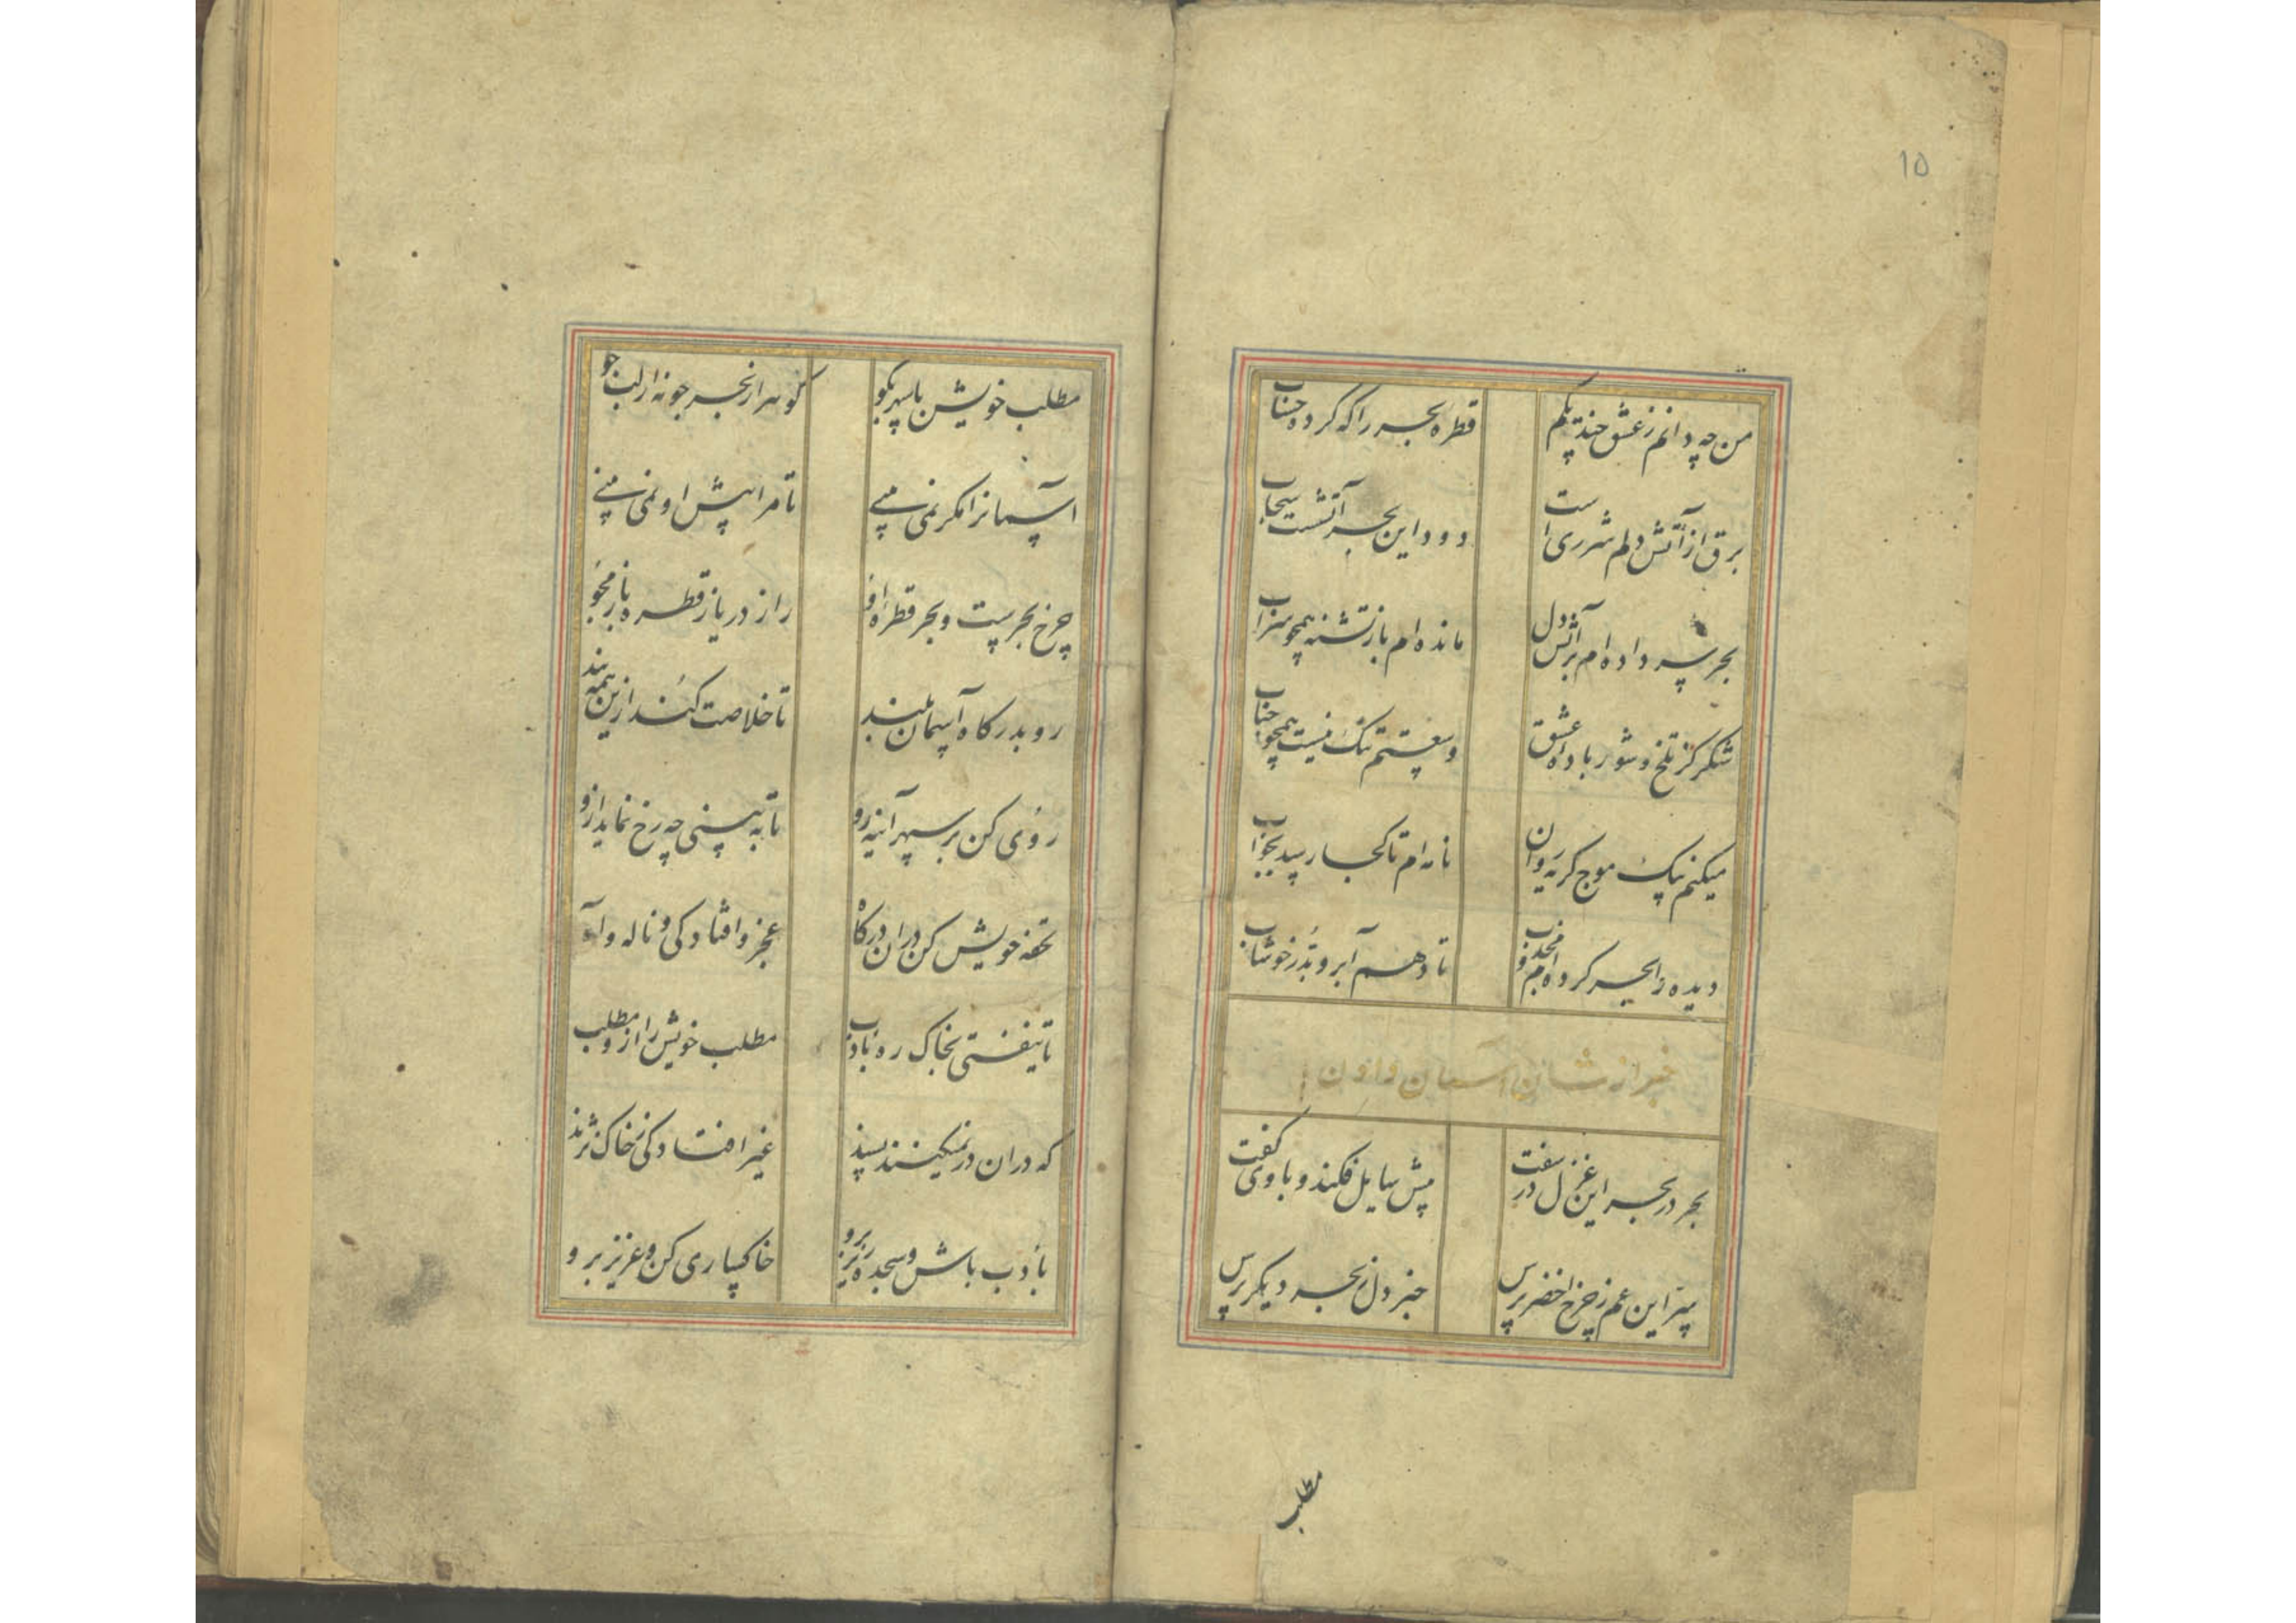 ۱۵
من چه دانم ز عشق چند یکم
قطره بحر را که کرده حساب
برق از آتش دلم شرری است
دود این بحر آتشست سحاب
بحر سر داده ام بر آتش دل
مانده ام باز تشنه همچو سراب
شکر کز تلخ و شور باده عشق
وسعتم تنک نیست همچو حباب
میکنم پیک موج کریه روان
نامه ام تا کجا رسد بجواب
دیده را بحر کرده ام مجذوب
تا دهم آبرو بدر خوشاب
خبر از شان آسمان دادن
بحر در بحر این غزل در سفت
پیش سایل فکند و با وی کفت
سر این غم ز چرخ اخضر پرس
خبر دل ز بحر دیکر پرس
مطلب
مطلب خویش با سپهر بکو
کوهر از بحر جو نه از لب جو
آسمانرا مکر نمی بینی
تا مرا پیش او نمی بینی
چرخ بحریست و بحر قطره او
راز دریا ز قطره باز مجو
رو بدرکاه آسمان بلند
تا خلاصت کند ازین همه بند
روی کن بر سپهر آینه رو
تا به بینی چه رخ نماید ازو
تحفه خویش کن در ان درکاه
عجز و افتادکی و ناله و آه
تا نیفتی بخاک ره بادب
مطلب خویش را ازو مطلب
که دران در نمیکنند پسند
غیر افتادکی ز خاک نژند
با ادب باش و سجده ریز برو
خاکساری کن و عزیز برو